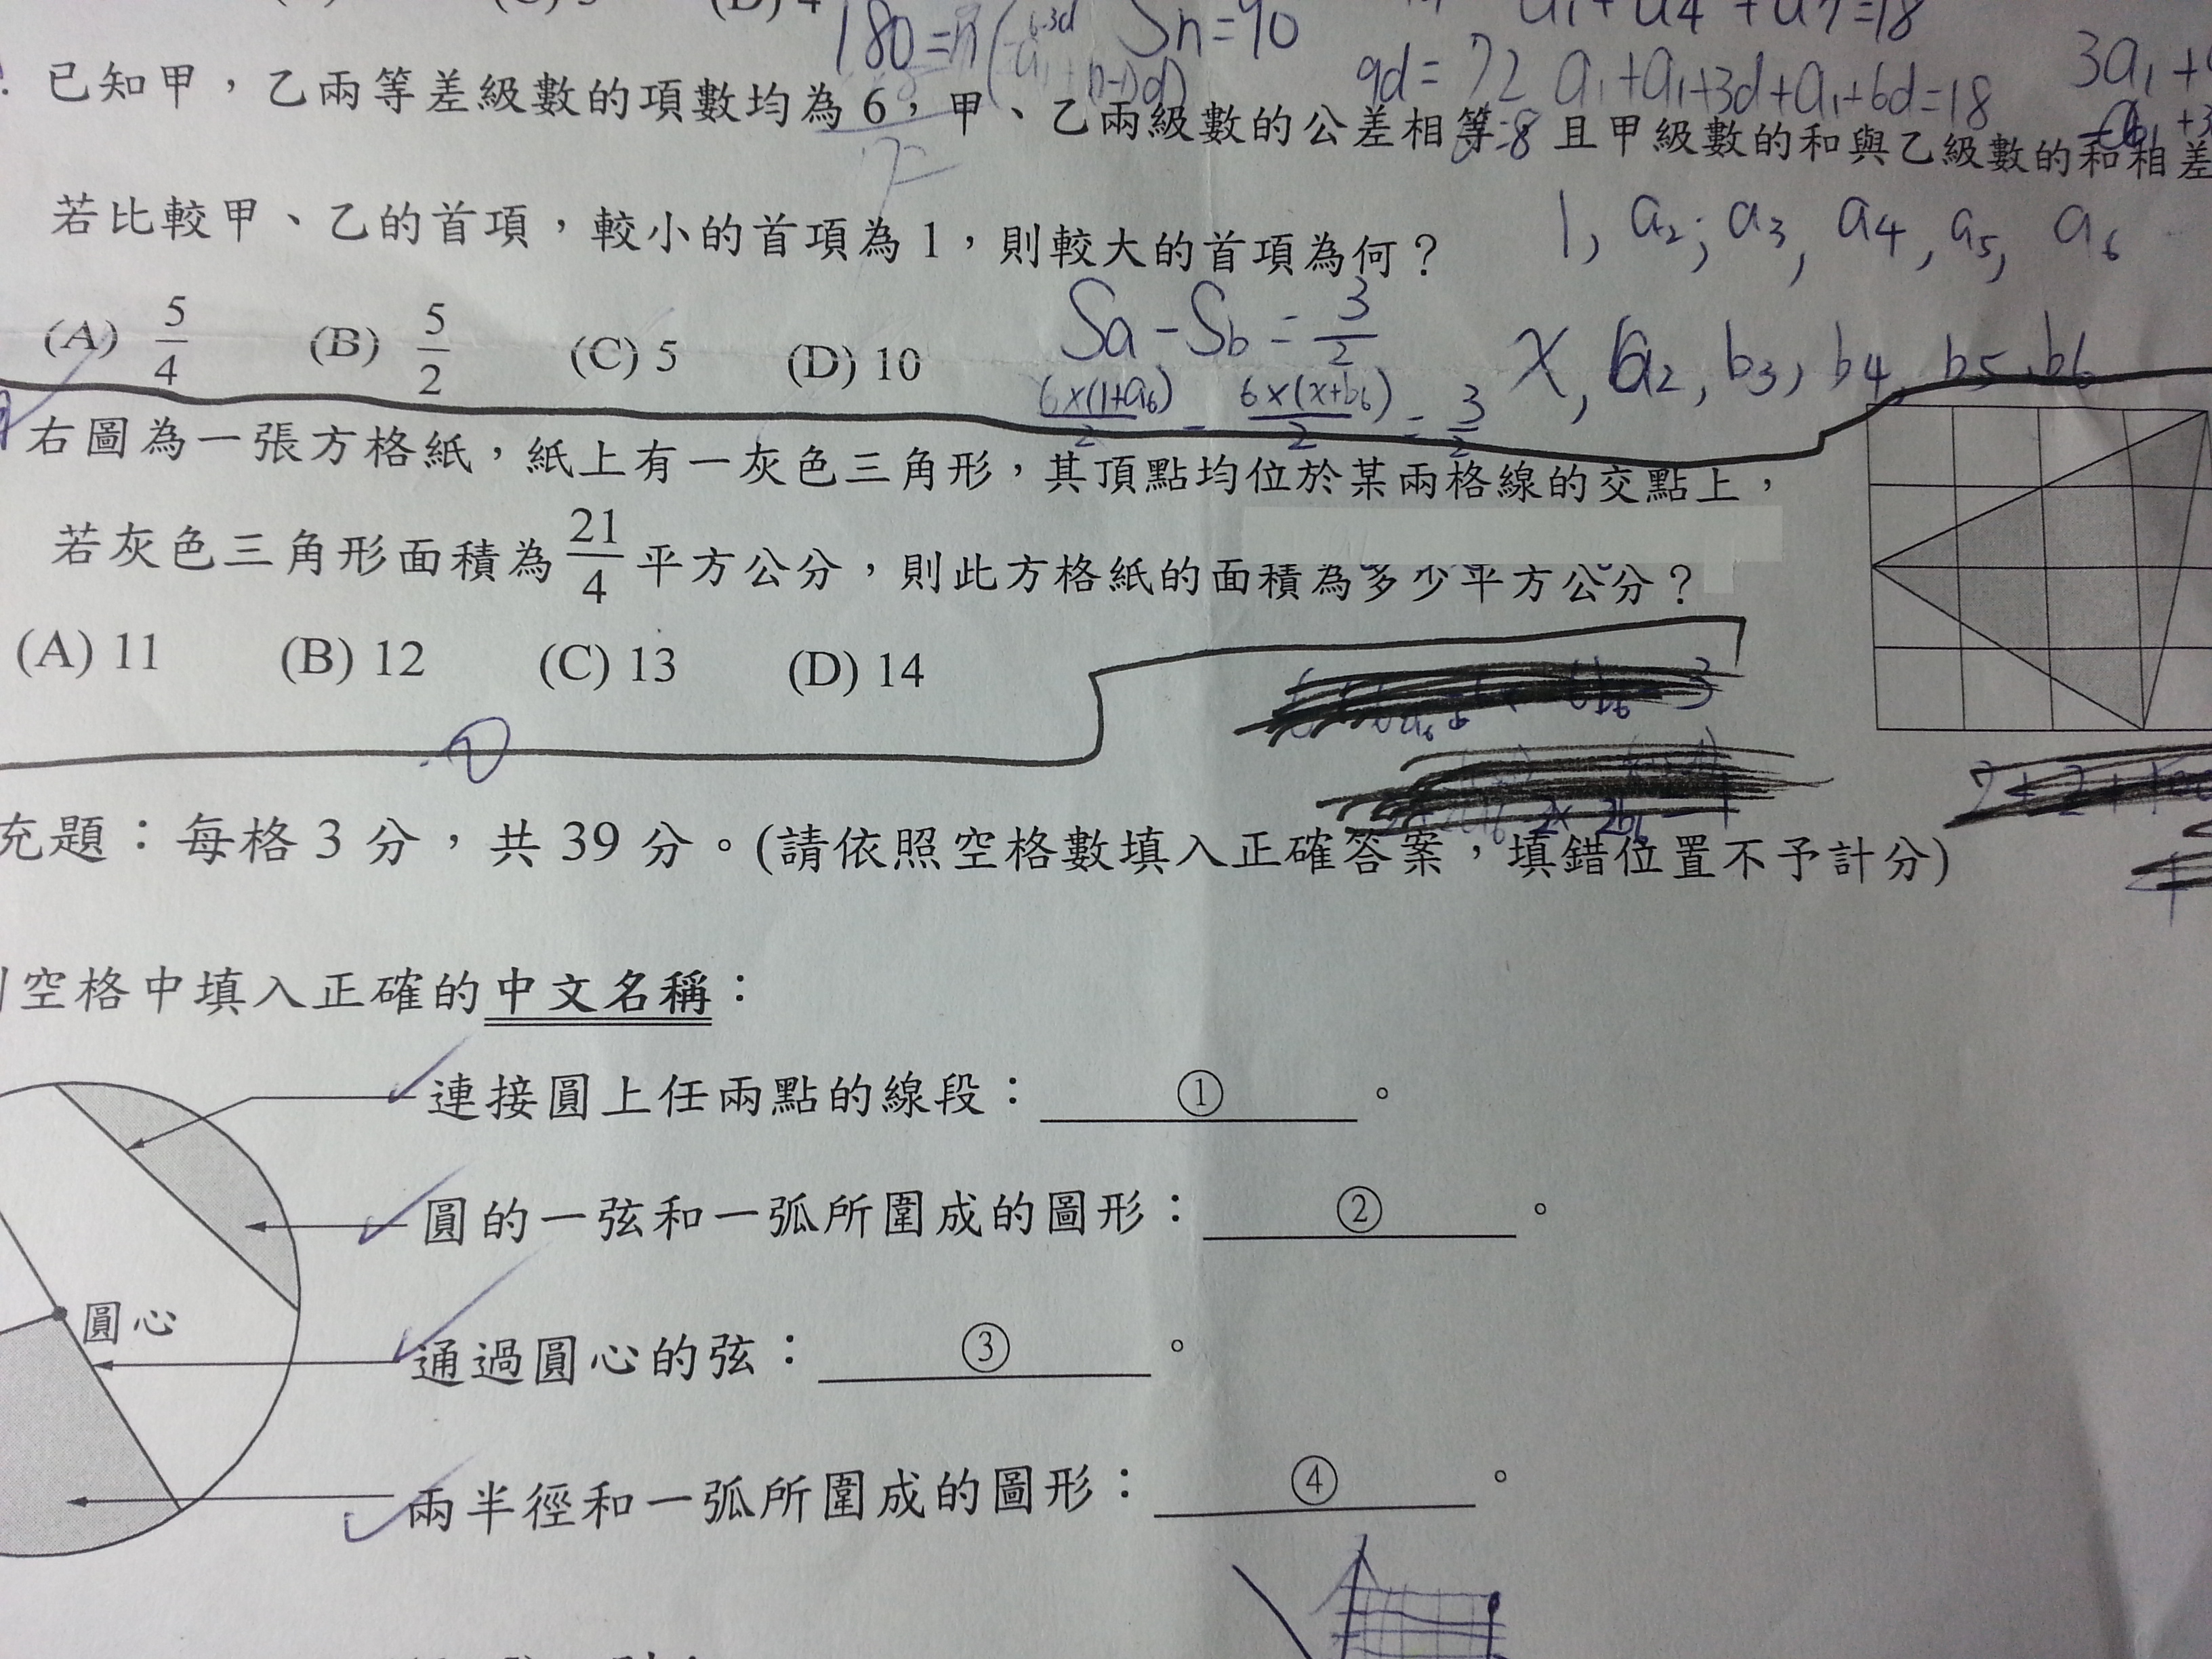 180=n( Sn=90 a₁+a₄+a₇=18
9d=72 a₁+a₁+3d+a₁+6d=18 3a₁+
已知甲，乙兩等差級數的項數均為6，甲、乙兩級數的公差相等 且甲級數的和與乙級數的和相差
若比較甲、乙的首項，較小的首項為1，則較大的首項為何？
1, a₂, a₃, a₄, a₅, a₆
(A) 5/4 (B) 5/2 (C) 5 (D) 10
Sa-Sb=3/2
x, b₃, b₄, b5, b6
6×(1+a₆)/2 - 6×(x+b₆)/2 = 3/2
右圖為一張方格紙，紙上有一灰色三角形，其頂點均位於某兩格線的交點上，
若灰色三角形面積為21/4平方公分，則此方格紙的面積為多少平方公分？
(A) 11 (B) 12 (C) 13 (D) 14
充題：每格3分，共39分。(請依照空格數填入正確答案，填錯位置不予計分)
空格中填入正確的中文名稱：
連接圓上任兩點的線段：①。
圓的一弦和一弧所圍成的圖形：②。
圓心
通過圓心的弦：③。
兩半徑和一弧所圍成的圖形：④。